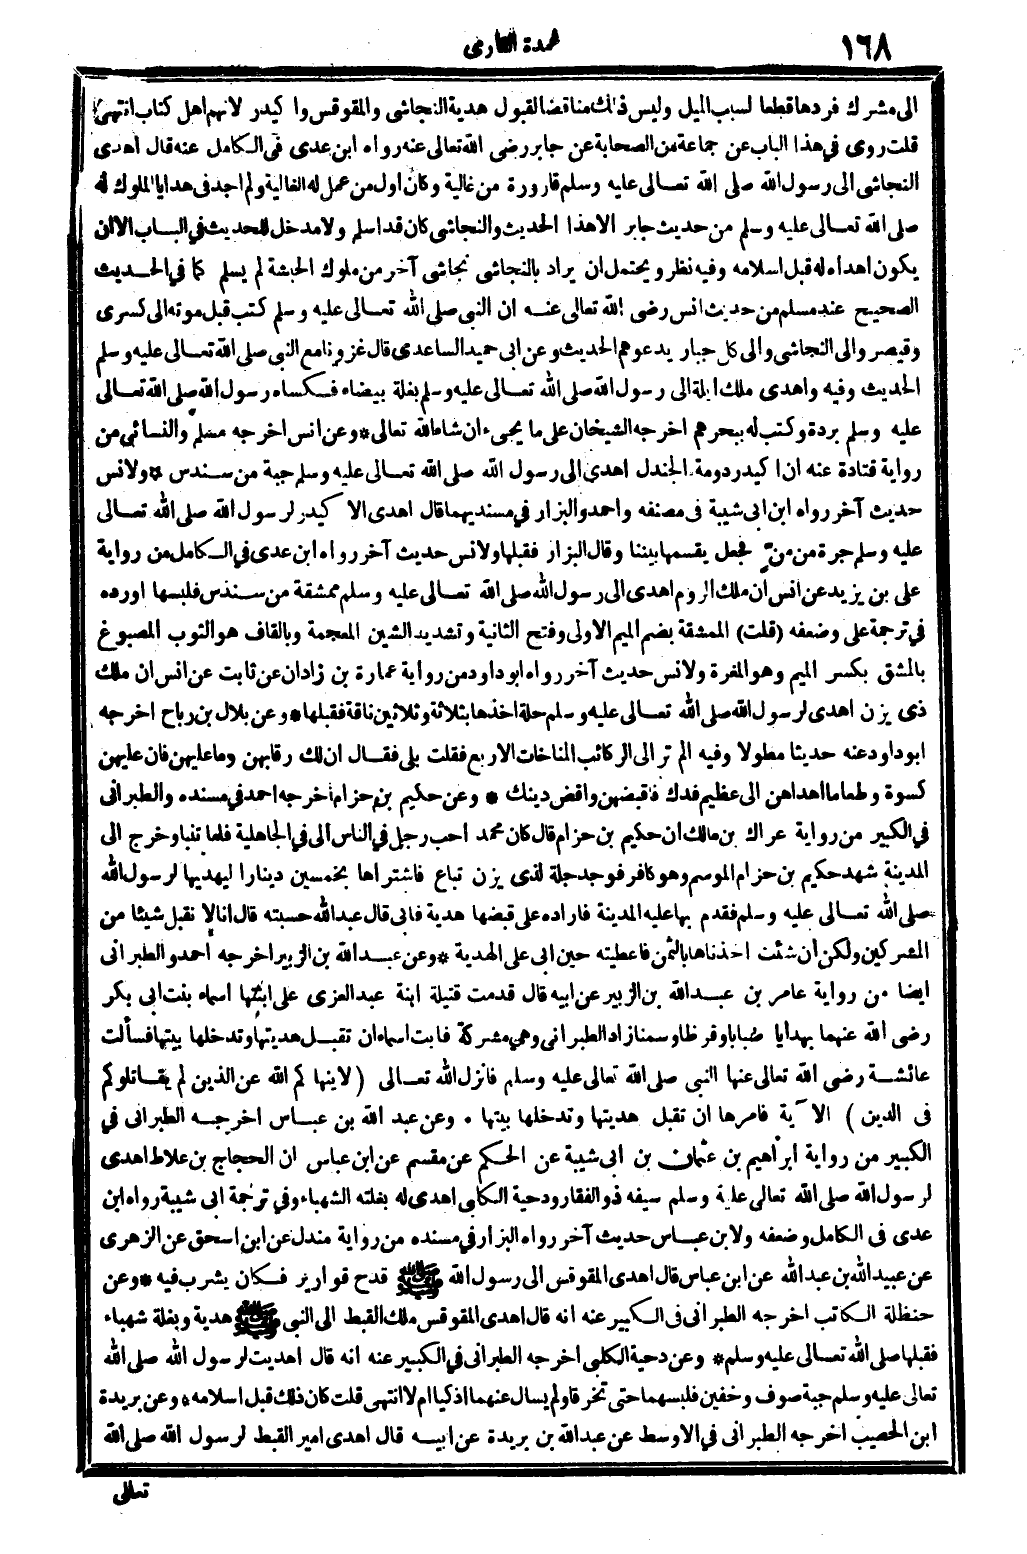 ١٦٨
عمدة القارى
الى مشرك فردها قطعا لسبب الميل وليس ذلك مناقضا لقبول هدية النجاشى والمقوقس وا كيدر لانهم اهل كتاب انتهى
قلت روى فى هذا الباب عن جماعة من الصحابة عن جابر رضى الله تعالى عنه رواه ابن عدى فى الكامل عنه قال اهدى
النجاشى الى رسول الله صلى الله تعالى عليه وسلم قارورة من غالية وكان اول من عمل له الغالية ولم اجد فى هدايا الملوك له
صلى الله تعالى عليه وسلم من حديث جابر الا هذا الحديث والنجاشى كان قد اسلم ولا مدخل للحديث فى الباب الا ان
يكون اهداه له قبل اسلامه وفيه نظر ويحتمل ان يراد بالنجاشى نجاشى آخر من ملوك الحبشة لم يسلم كما فى الحديث
الصحيح عند مسلم من حديث انس رضى الله تعالى عنه ان النبى صلى الله تعالى عليه وسلم كتب قبل موته الى كسرى
وقيصر والى النجاشى والى كل جبار يدعوهم الحديث وعن ابى حميد الساعدى قال غزونا مع النبى صلى الله تعالى عليه وسلم
الحديث وفيه واهدى ملك ايلة الى رسول الله صلى الله تعالى عليه وسلم بغلة بيضاء فكساه رسول الله صلى الله تعالى
عليه وسلم بردة وكتب له ببحرهم اخرجه الشيخان على ما يجىء ان شاء الله تعالى * وعن انس اخرجه مسلم والنسائى من
رواية قتادة عنه ان ا كيدر دومة الجندل اهدى الى رسول الله صلى الله تعالى عليه وسلم جبة من سندس * ولانس
حديث آخر رواه ابن ابى شيبة فى مصنفه واحمد والبزار فى مسنديهما قال اهدى الا كيدر لرسول الله صلى الله تعالى
عليه وسلم جرة من منّ فجعل يقسمها بيننا وقال البزار فقبلها ولانس حديث آخر رواه ابن عدى فى الكامل من رواية
على بن يزيد عن انس ان ملك الروم اهدى الى رسول الله صلى الله تعالى عليه وسلم ممشقة من سندس فلبسها اورده
فى ترجمة على وضعفه (قلت) الممشقة بضم الميم الاولى وفتح الثانية وتشديد الشين المعجمة وبالقاف هو الثوب المصبوغ
بالمشق بكسر الميم وهو المغرة ولانس حديث آخر رواه ابو داود من رواية عمارة بن زادان عن ثابت عن انس ان ملك
ذى يزن اهدى لرسول الله صلى الله تعالى عليه وسلم حلة اخذها بثلاثة وثلاثين ناقة فقبلها * وعن بلال بن رباح اخرجه
ابو داود عنه حديثا مطولا وفيه الم تر الى الركائب المناخات الاربع فقلت بلى فقال ان لك رقابهن وما عليهن فان عليهن
كسوة وطعاما اهداهن الى عظيم فدك فاقبضهن واقض دينك * وعن حكيم بن حزام اخرجه احمد فى مسنده والطبرانى
فى الكبير من رواية عراك بن مالك ان حكيم بن حزام قال كان محمد احب رجل فى الناس الى فى الجاهلية فلما تنبا وخرج الى
المدينة شهد حكيم بن حزام الموسم وهو كافر فوجد حلة لذى يزن تباع فاشتراها بخمسين دينارا ليهديها لرسول الله
صلى الله تعالى عليه وسلم فقدم بها عليه المدينة فاراده على قبضها هدية فابى قال عبد الله حسبته قال انا لا نقبل شيئا من
المشركين ولكن ان شئت اخذناها بالثمن فاعطيته حين ابى على الهدية * وعن عبد الله بن الزبير اخرجه احمد والطبرانى
ايضا من رواية عامر بن عبد الله بن الزبير عن ابيه قال قدمت قتيلة ابنة عبد العزى على ابنتها اسماء بنت ابى بكر
رضى الله عنهما بهدايا ضبابا وقرظا وسمنا زاد الطبرانى وهى مشركة فابت اسماء ان تقبل هديتها وتدخلها بيتها فسألت
عائشة رضى الله تعالى عنها النبى صلى الله تعالى عليه وسلم فانزل الله تعالى (لا ينها كم الله عن الذين لم يقاتلوكم
فى الدين) الآية فامرها ان تقبل هديتها وتدخلها بيتها * وعن عبد الله بن عباس اخرجه الطبرانى فى
الكبير من رواية ابراهيم بن عثمان بن ابى شيبة عن الحكم عن مقسم عن ابن عباس ان الحجاج بن علاط اهدى
لرسول الله صلى الله تعالى عليه وسلم سيفه ذو الفقار ودحية الكلبى اهدى له بغلته الشهباء وفى ترجمة ابى شيبة رواه ابن
عدى فى الكامل وضعفه ولابن عباس حديث آخر رواه البزار فى مسنده من رواية مندل عن ابن اسحق عن الزهرى
عن عبيد الله بن عبد الله عن ابن عباس قال اهدى المقوقس الى رسول الله ﷺ قدح قوارير فكان يشرب فيه * وعن
حنظلة الكاتب اخرجه الطبرانى فى الكبير عنه انه قال اهدى المقوقس ملك القبط الى النبى ﷺ هدية وبغلة شهباء
فقبلها صلى الله تعالى عليه وسلم * وعن دحية الكلبى اخرجه الطبرانى فى الكبير عنه انه قال اهديت لرسول الله صلى الله
تعالى عليه وسلم جبة صوف وخفين فلبسهما حتى تخرقا ولم يسال عنهما اذكيا ام لا انتهى قلت كان ذلك قبل اسلامه * وعن بريدة
ابن الحصيب اخرجه الطبرانى فى الاوسط عن عبد الله بن بريدة عن ابيه قال اهدى امير القبط لرسول الله صلى الله
تعالى